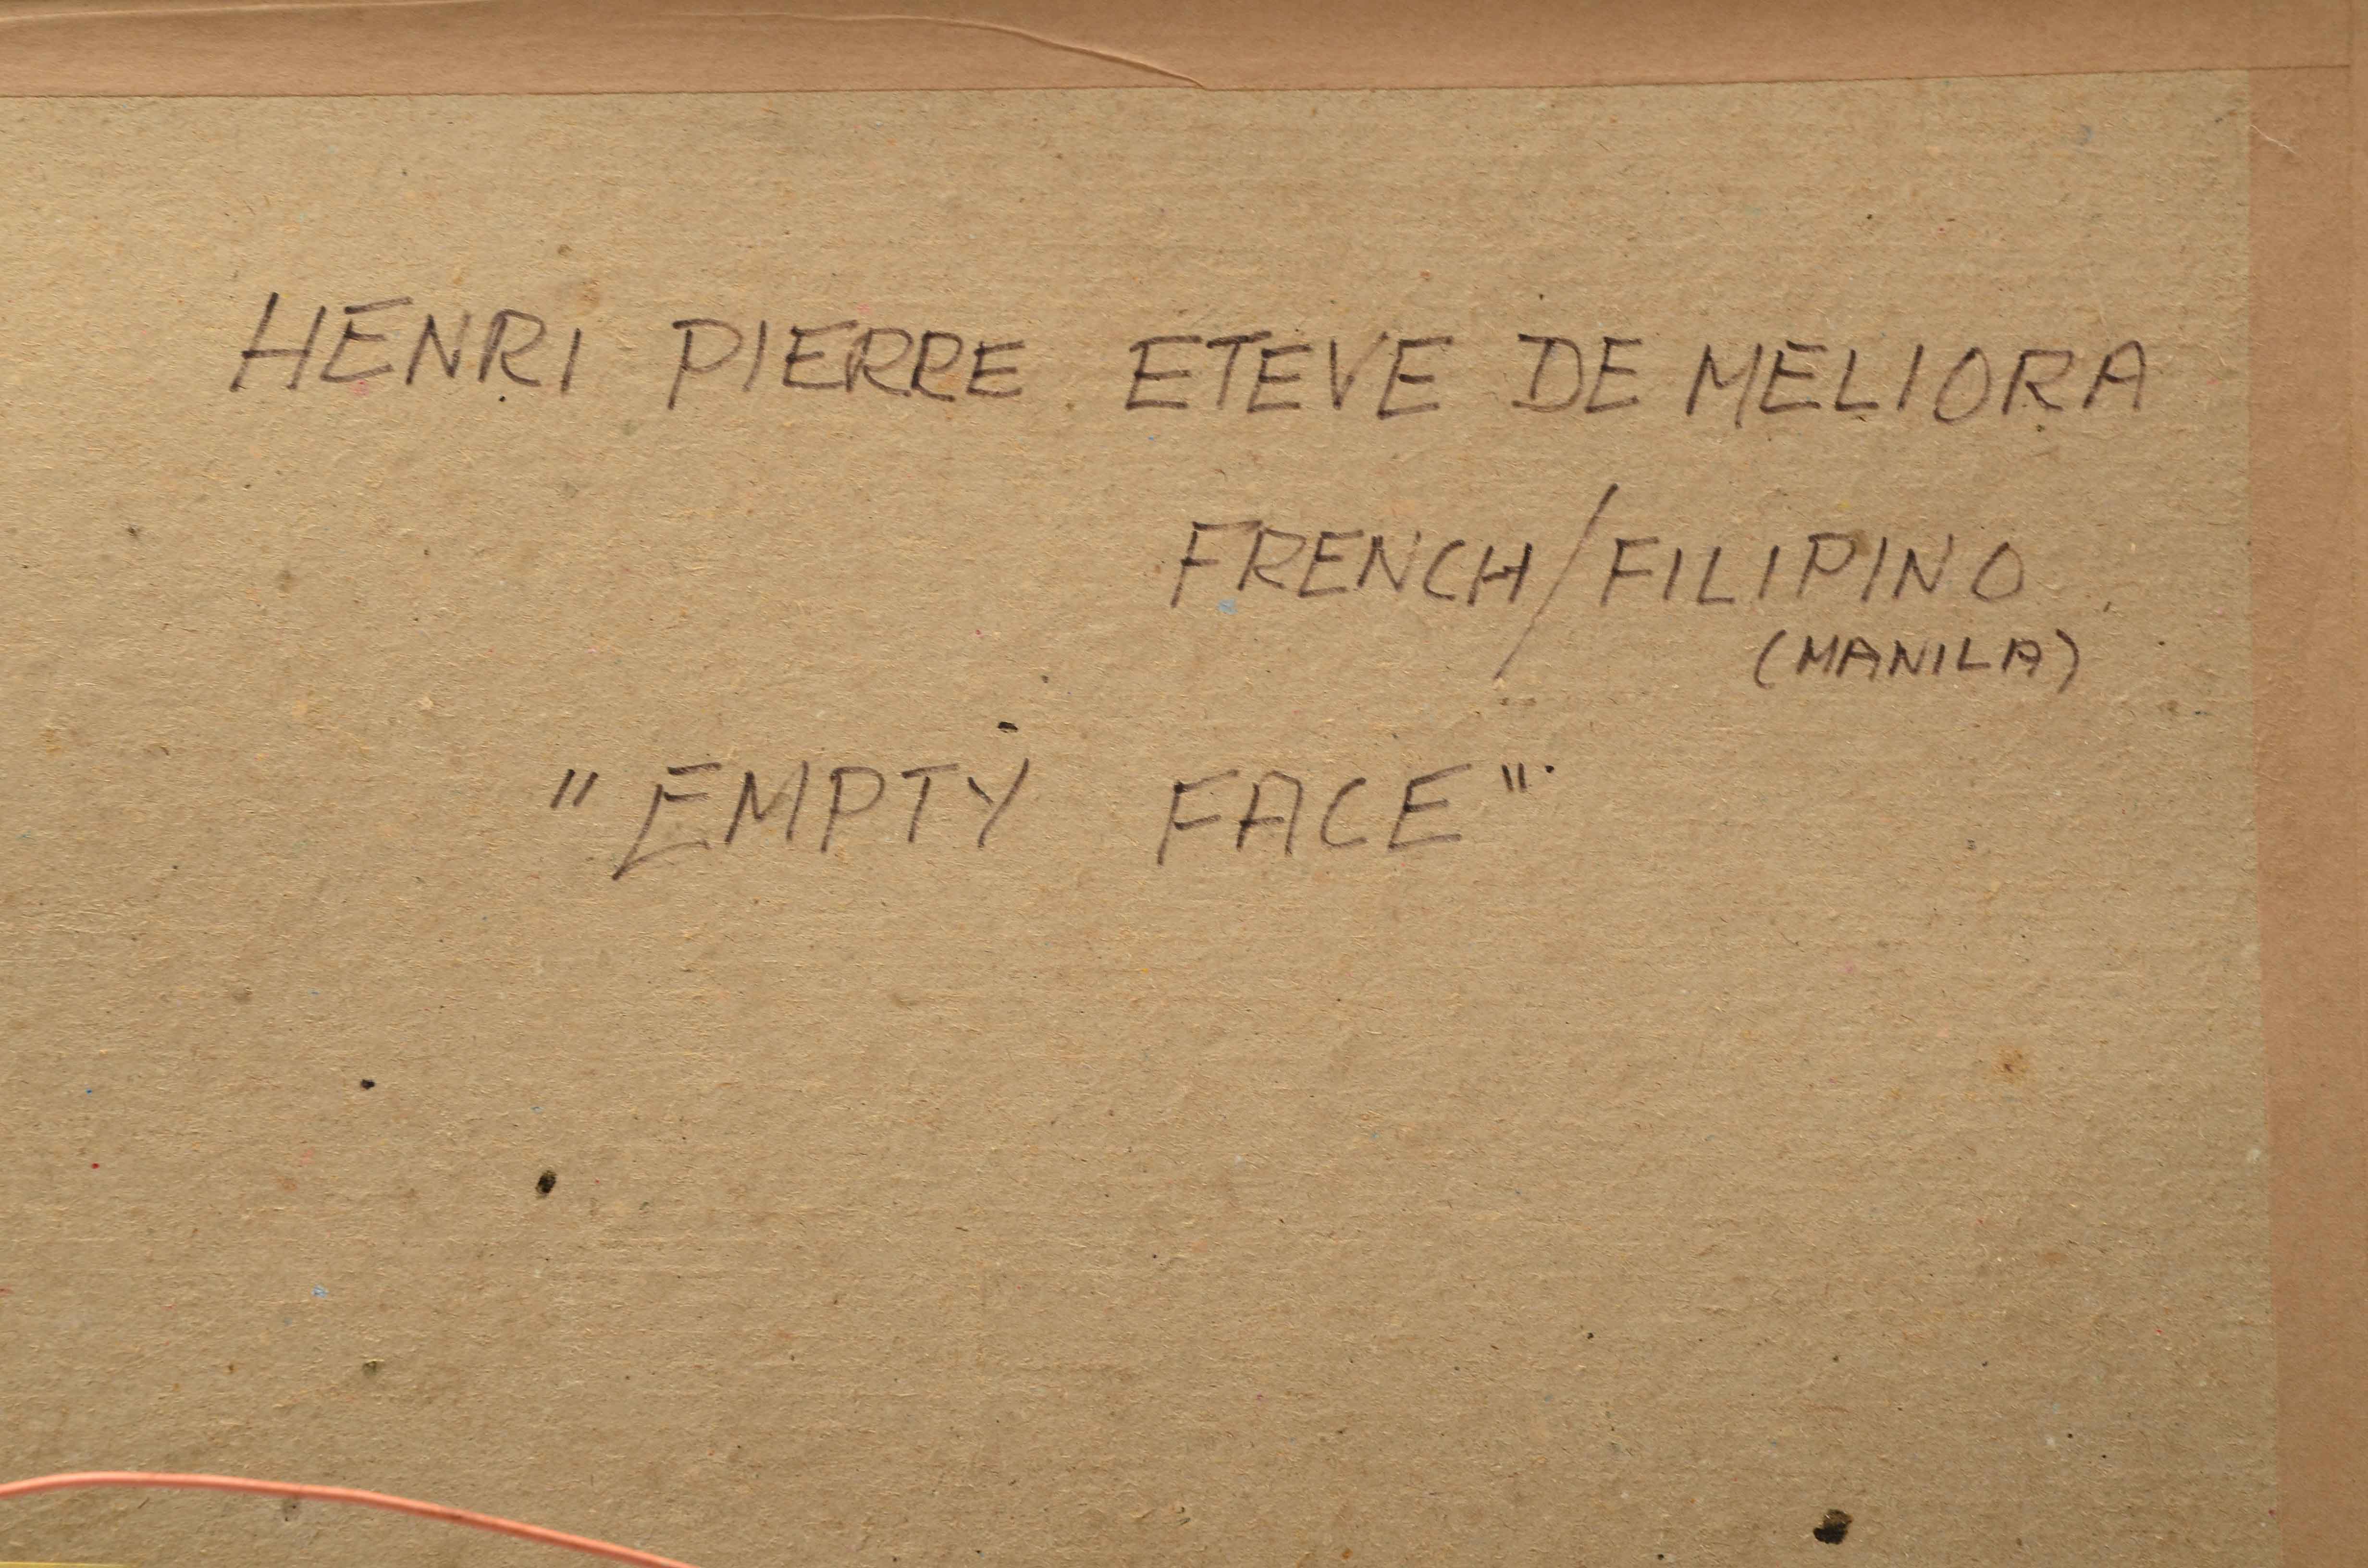 HENRI PIERRE ETEVE DE MELIORA
FRENCH/FILIPINO
(MANILA)
"EMPTY FACE"